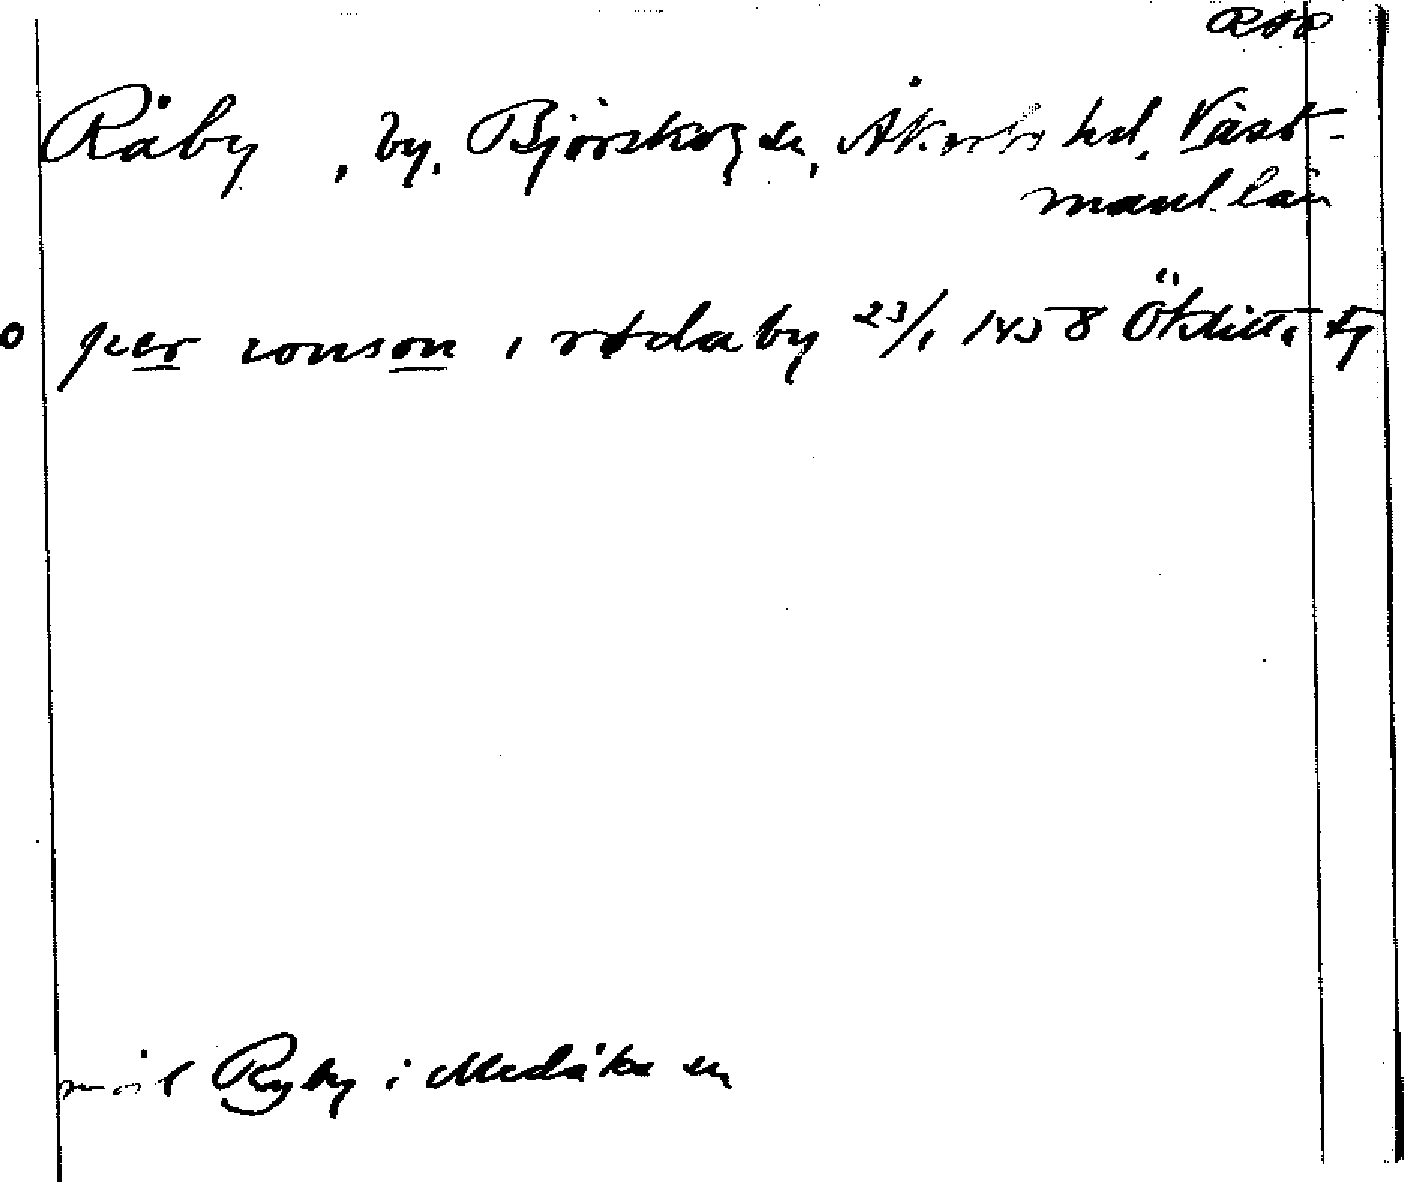 RAP
Råby , by, Björskog sn, Åkerbo hd, Väst-
manl. län
o per ionson i rødaby 23/1 1458
möl Ryby i Medåke sn